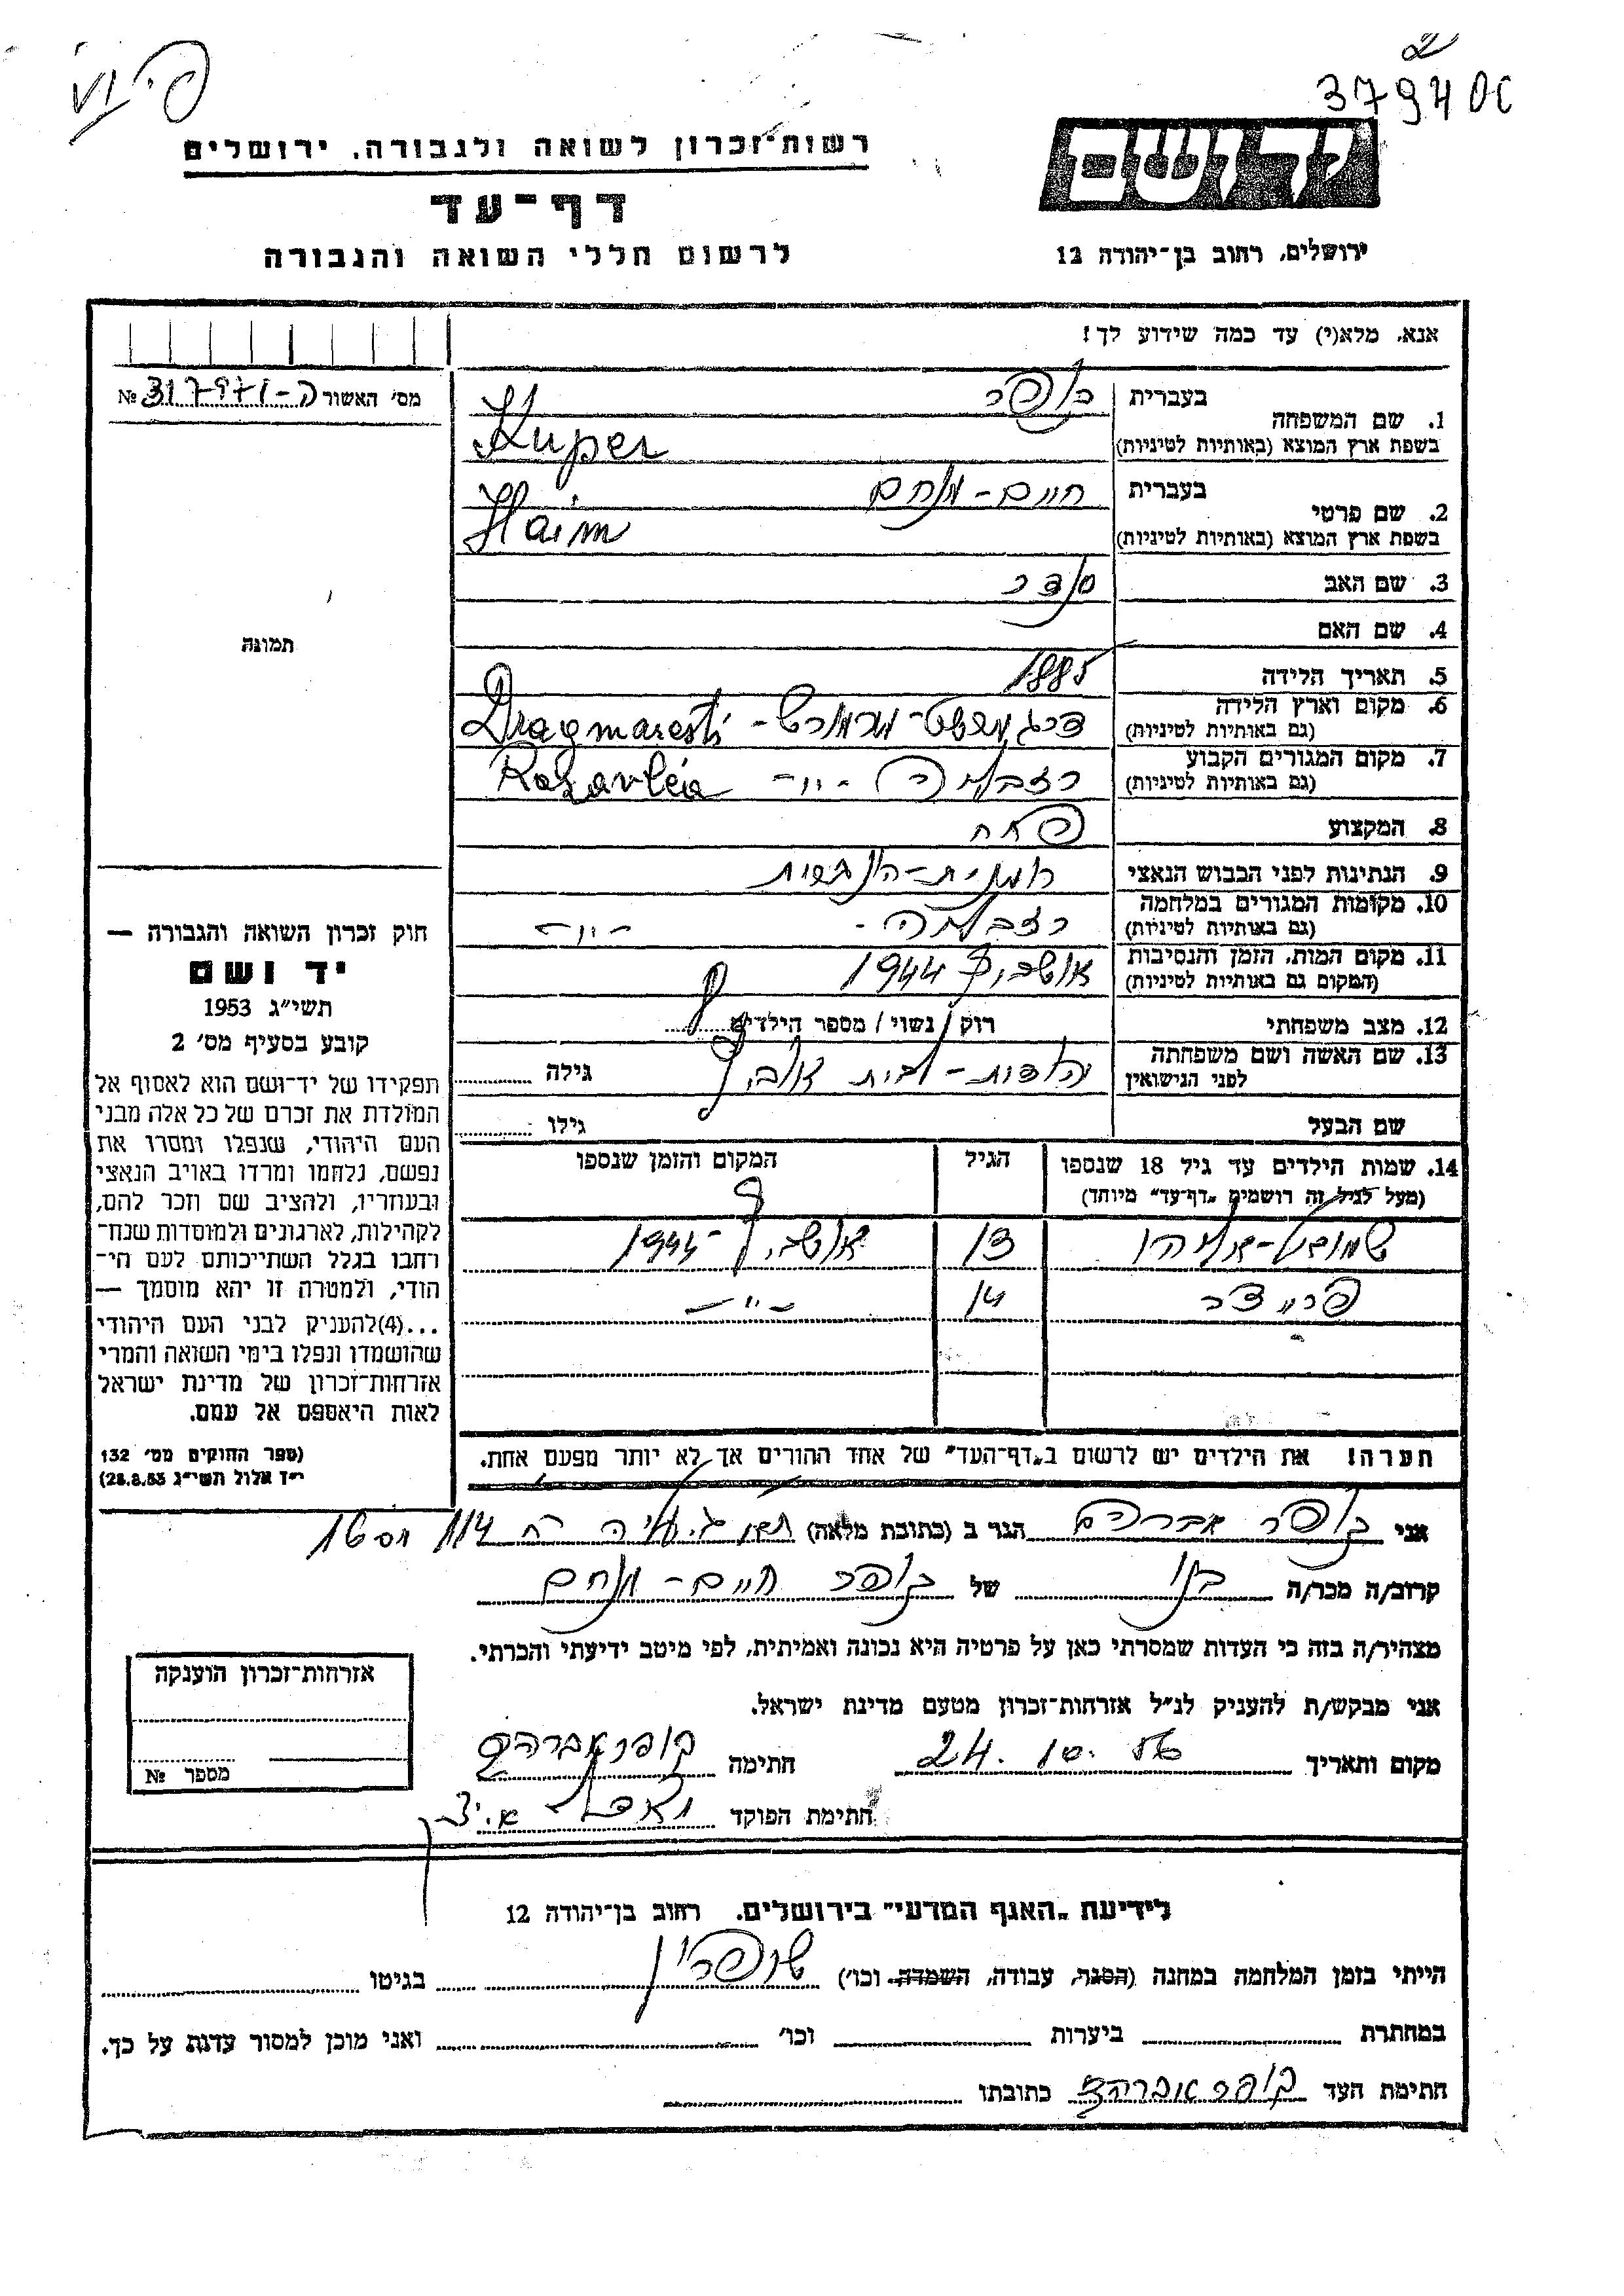 379400
רשות־זכרון לשואה ולגבורה. ירושלים
דף־עד
לרשום חללי השואה והגבורה
ירושלים, רחוב בן־יהודה 12
אנא, מלא(י) עד כמה שידוע לך!
מס׳ האשור ה-317971 №
1. שם המשפחה
בעברית קופר
בשפת ארץ המוצא (באותיות לטיניות) Kuper
2. שם פרטי
בעברית חיים-מנחם
בשפת ארץ המוצא (באותיות לטיניות) Haim
3. שם האב
4. שם האם
5. תאריך הלידה 1885
6. מקום וארץ הלידה
(גם באותיות לטיניות) Dragmaresti
7. מקום המגורים הקבוע
(גם באותיות לטיניות) רזבליה -"- Rozavléa
8. המקצוע
9. הנתינות לפני הכבוש הנאצי
10. מקומות המגורים במלחמה
(גם באותיות לטיניות) רזבליה -"-
11. מקום המות, הזמן והנסיבות
(המקום גם באותיות לטיניות) אושביץ 1944
12. מצב משפחתי רוק / נשוי / מספר הילדים
13. שם האשה ושם משפחתה
לפני הנישואין יהודית - לבית גילה
שם הבעל גילו
תמונה
חוק זכרון השואה והגבורה —
יד ושם
תשי״ג 1953
קובע בסעיף מס׳ 2
תפקידו של יד־ושם הוא לאסוף אל
המולדת את זכרם של כל אלה מבני
העם היהודי, שנפלו ומסרו את
נפשם, נלחמו ומרדו באויב הנאצי
ובעוזריו, ולהציב שם וזכר להם,
לקהילות, לארגונים ולמוסדות שנח־
רבו בגלל השתייכותם לעם הי־
הודי, ולמטרה זו יהא מוסמך —
...(4)להעניק לבני העם היהודי
שהושמדו ונפלו בימי השואה והמרי
אזרחות־זכרון של מדינת ישראל
לאות היאספם אל עמם.
(ספר החוקים מס׳ 132
י״ד אלול תשי״ג 28.8.53)
14. שמות הילדים עד גיל 18 שנספו
(מעל לגיל זה רושמים „דף־עד״ מיוחד)
הגיל
המקום והזמן שנספו
13 אושביץ - 1944
14 -"-
הערה! את הילדים יש לרשום ב„דף־העד״ של אחד ההורים אך לא יותר מפעם אחת.
אני קופר אברהם הגר ב (כתובת מלאה)
קרוב/ה מכר/ה בנו של קופר חיים - מנחם
מצהיר/ה בזה כי העדות שמסרתי כאן על פרטיה היא נכונה ואמיתית, לפי מיטב ידיעתי והכרתי.
אני מבקש/ת להעניק לנ״ל אזרחות־זכרון מטעם מדינת ישראל.
מקום ותאריך 24.10 חתימה קופר אברהם
חתימת הפוקד
אזרחות־זכרון הוענקה
מספר №
לידיעת „האגף המדעי״ בירושלים, רחוב בן־יהודה 12
הייתי בזמן המלחמה במחנה (הסגר, עבודה, השמדה וכו׳) בגיטו
במחתרת ביערות וכו׳ ואני מוכן למסור עדות על כך.
חתימת העד קופר אברהם כתובתו